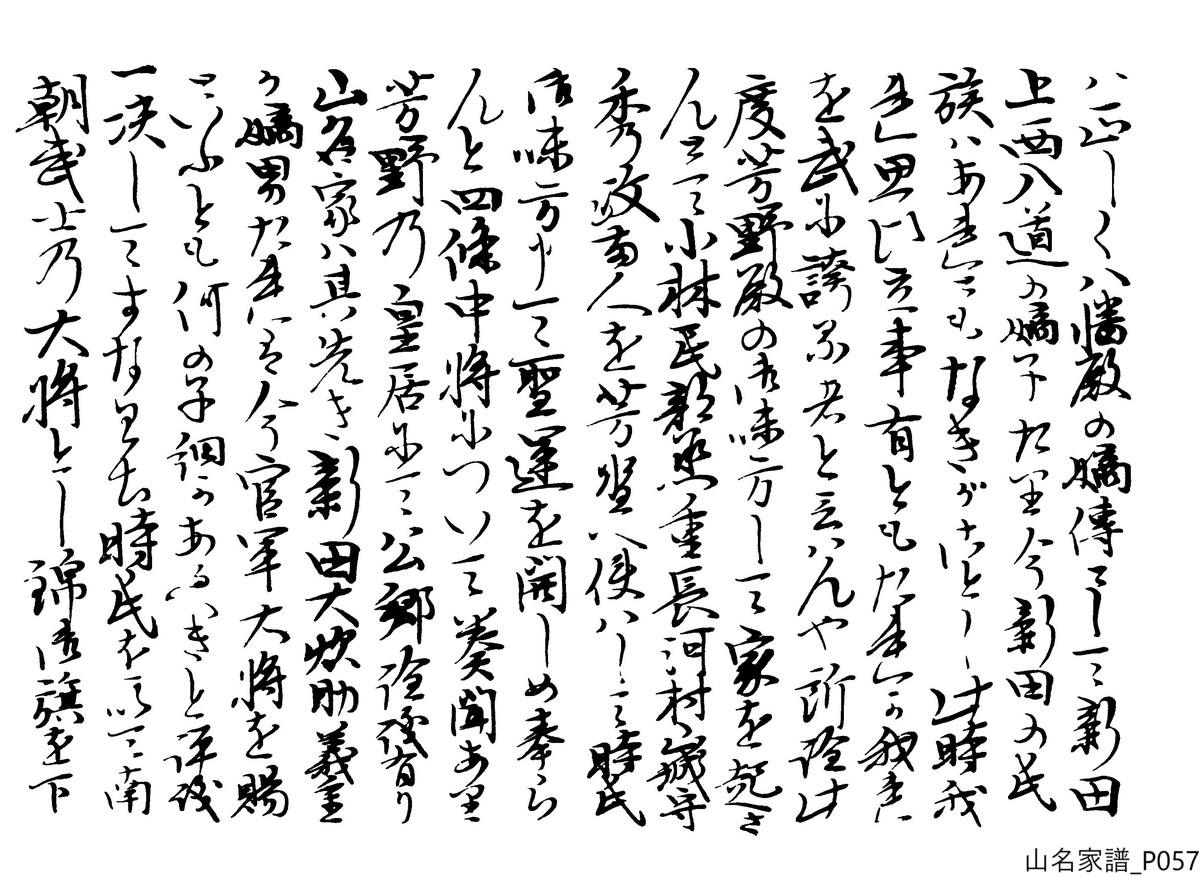 ハ正しく八幡殿の嫡傳にして新田
上西入道の嫡子たり今新田の氏
族ハあれともなきがことし此時我
思ひ立事有ともたれか我に
を武に誇る者と言ハんや所詮此
度芳野殿の御味方して家を起さ
んとて小林民部丞重長河村
秀政両人を芳野へ使ハして時氏
御味方申て聖運を開しめ奉ら
んと四條中将について奏聞あり
芳野乃皇居にて公卿詮議有り
山名家ハ其先き新田大炊助義重
か嫡男たれは今官軍大将を賜
といふとも何の子細かあるへきと評議
一决してすなわち時氏を以て南
朝武士乃大将とし錦御旗を下
山名家譜_P057